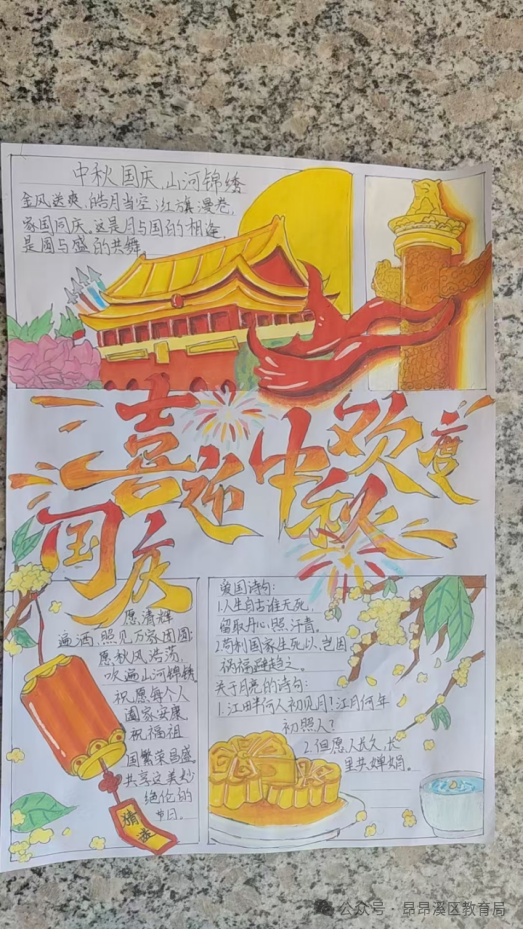 中秋国庆,山河锦绣
金风送爽,皓月当空,红旗漫卷,
家国同庆.这是月与国的相逢
是圆与盛的共舞
喜迎中秋
欢度
国庆
愿清辉
遍洒,照见万家团圆;
愿秋风浩荡,
吹遍山河锦绣
祝愿每个人
阖家安康
祝福祖
国繁荣昌盛.
共享这美妙
绝伦的
节日.
猜迷
爱国诗句:
1.人生自古谁无死,
留取丹心照汗青。
2.苟利国家生死以,岂因
祸福避趋之。
关于月亮的诗句:
1.江畔何人初见月?江月何年
初照人?
2.但愿人长久,千
里共婵娟。
公众号·昂昂溪区教育局